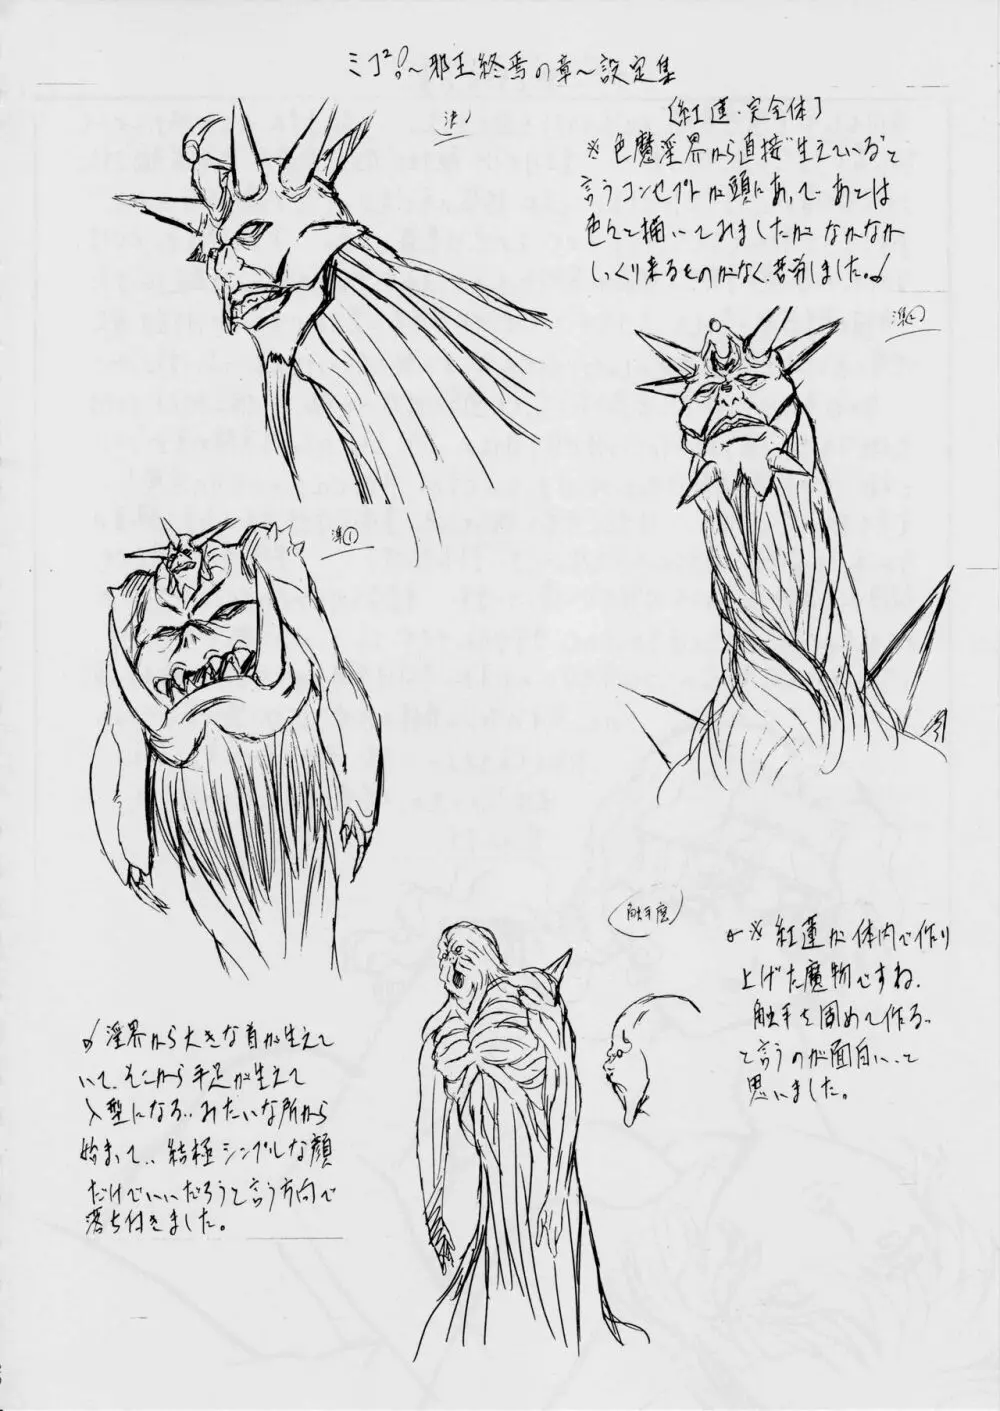 ミコ²!~邪王終焉の章~設定集
[紅蓮・完全体]
※色魔淫界から直接"生えている"と
言うコンセプトが頭にあって、あとは
色んと描いてみましたがなかなか
しっくり来るものがなく、苦労しました。
準①
触手魔
※紅蓮が体内で作り
上げた魔物ですね、
触手を固めて作る、
と言うのが面白い、と
思いました。
淫界から大きな首が生えて
いて、そこから手足が生えて
人型になる、みたいな所から
始まって、結極シンプルな顔
だけでいいだろうと言う方向で
落ち付きました。